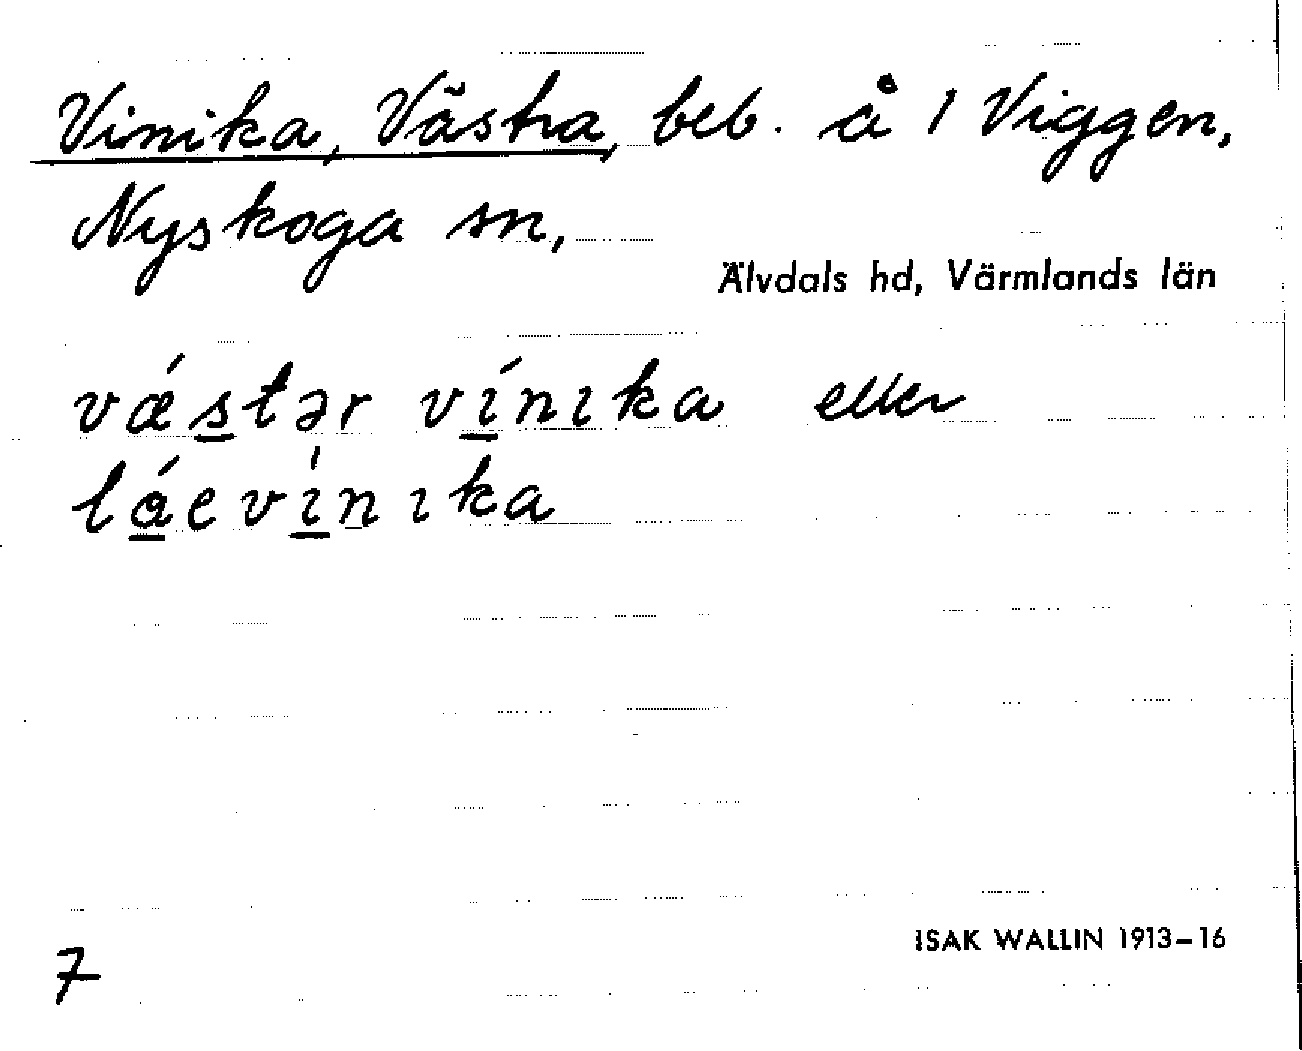 Vinika, Västra, beb. å 1 Viggen,
Nyskoga sn,
Älvdals hd, Värmlands län
vǽstər vínıka eller
láevìnıka
ISAK WALLIN 1913–16
7